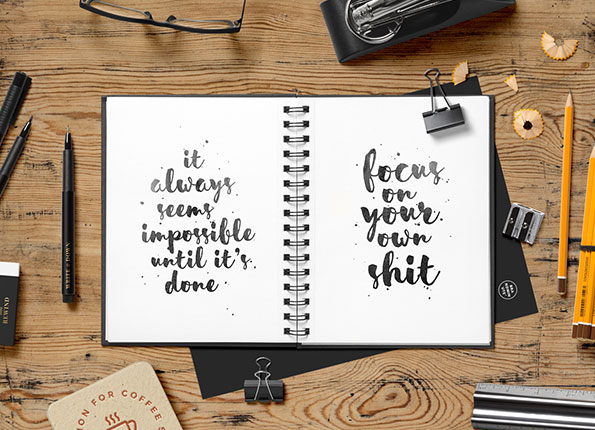 it
always
seems
impossible
until it's
done
focus
on
your
own
shit
WRITE & DOWN
REWIND
ION FOR COFFEE S